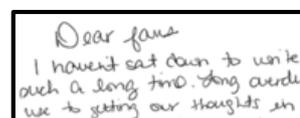 Dear fans
I haven't sat down to write
such a long time. Long overdu
use to getting our thoughts on